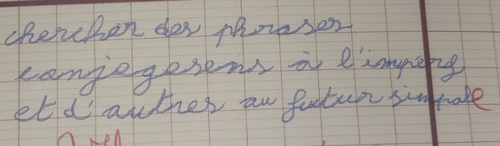 chercher des phrases
conjegesens à l'imperg
et d'autres au futur simpale